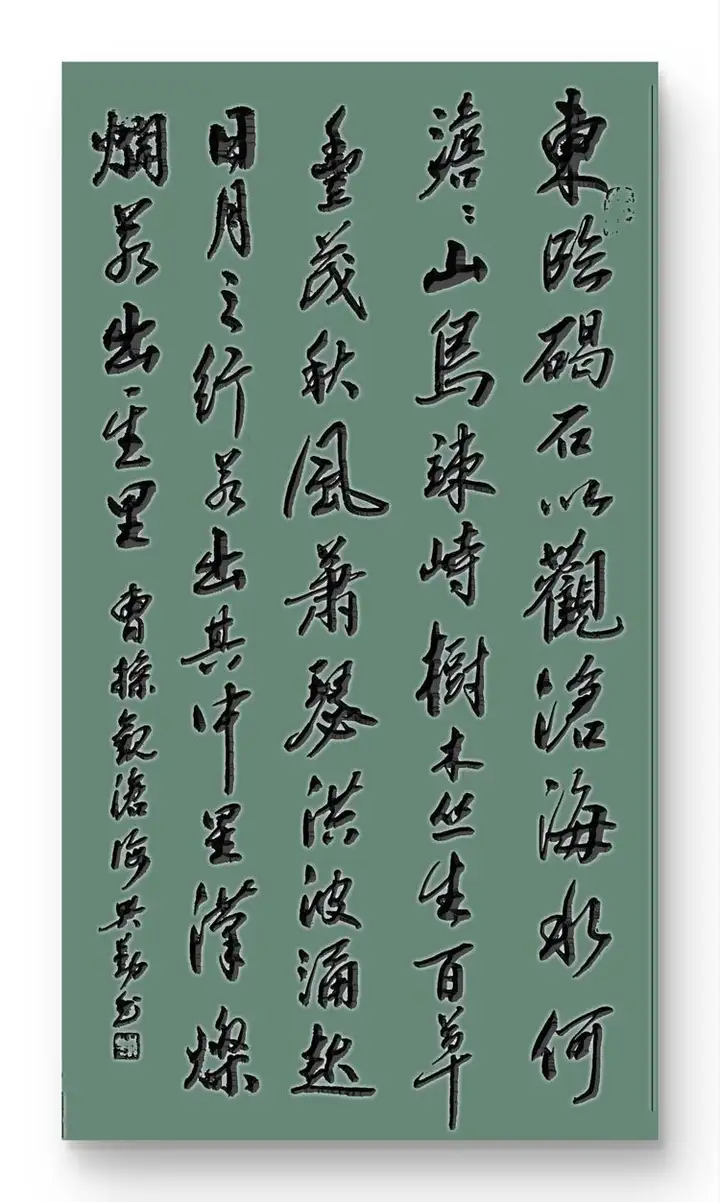 東臨碣石以觀滄海水何
澹〻山島竦峙樹木丛生百草
豐茂秋風蕭瑟洪波涌起
日月之行若出其中星漢燦
爛若出其里 曹操观滄海 勤书